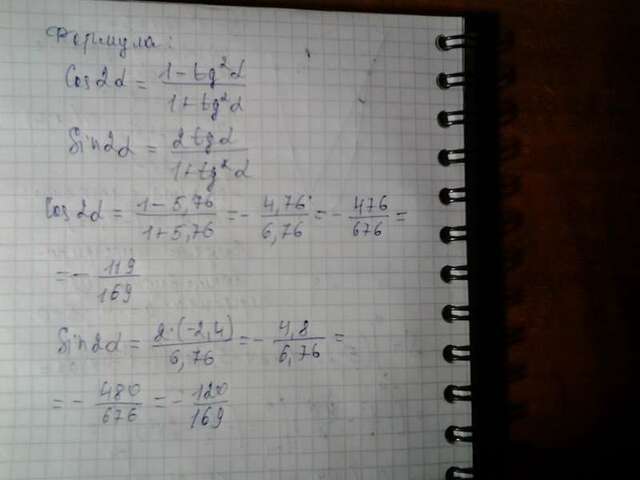 Формула:
Cos2α = (1 - tg²α)/(1 + tg²α)
Sin2α = (2tgα)/(1 + tg²α)
Cos2α = (1 - 5,76)/(1 + 5,76) = - 4,76/6,76 = - 476/676 =
= - 119/169
Sin2α = (2·(-2,4))/(6,76) = - 4,8/6,76 =
= - 480/676 = - 120/169